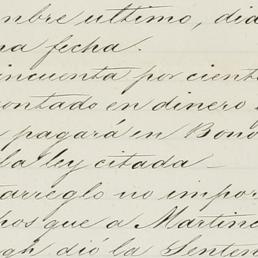 mbre ultimo, dia
na fecha.
incuenta por ciento
ontado en dinero
pagará en Bono
la ley citada _
arreglo no impor
hos que a Martinc
gh dió la Senten